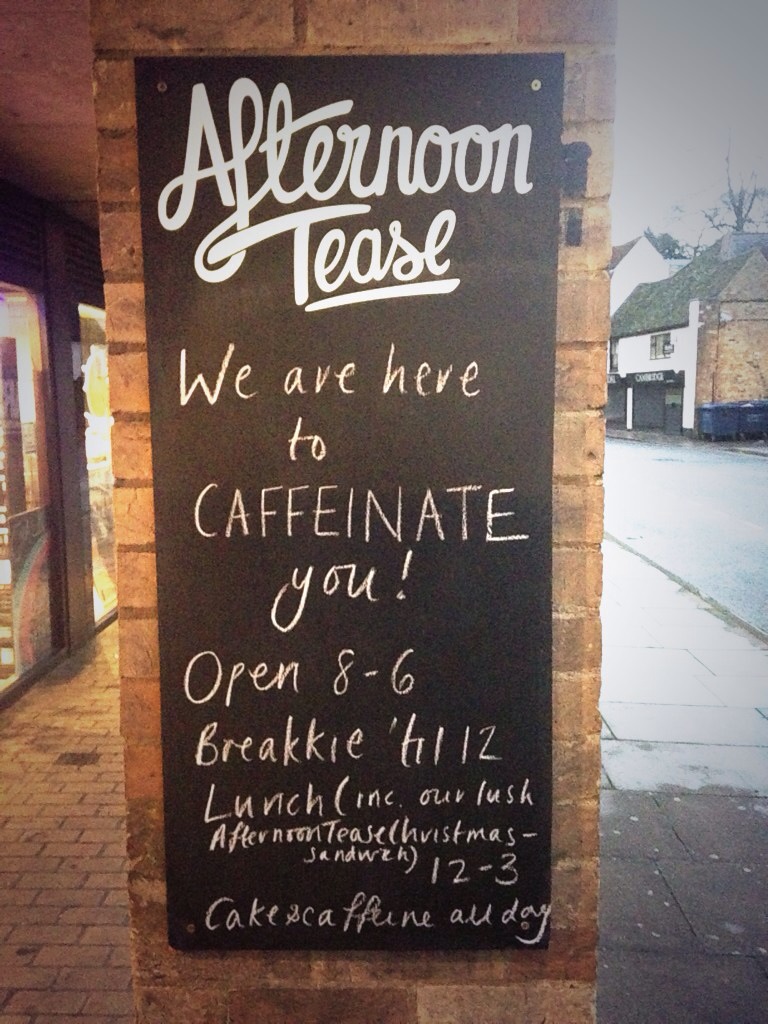 Afternoon
Tease
We are here
to
CAFFEINATE
you!
Open 8-6
Breakkie 'til 12
Lunch (inc. our lush
Afternoon Tease Christmas-
sandwich)
12-3
Cake & caffeine all day
CAMBRIDGE